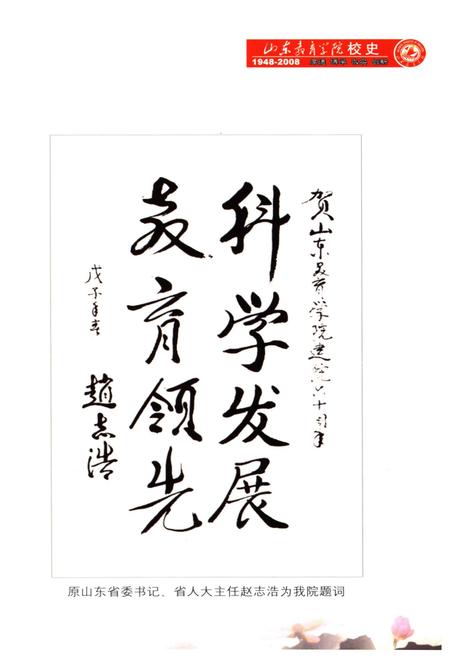 山东教育学院校史
1948-2008
贺山东教育学院建院六十周年
科学发展
教育领先
戊子年春
趙志浩
原山东省委书记、省人大主任赵志浩为我院题词